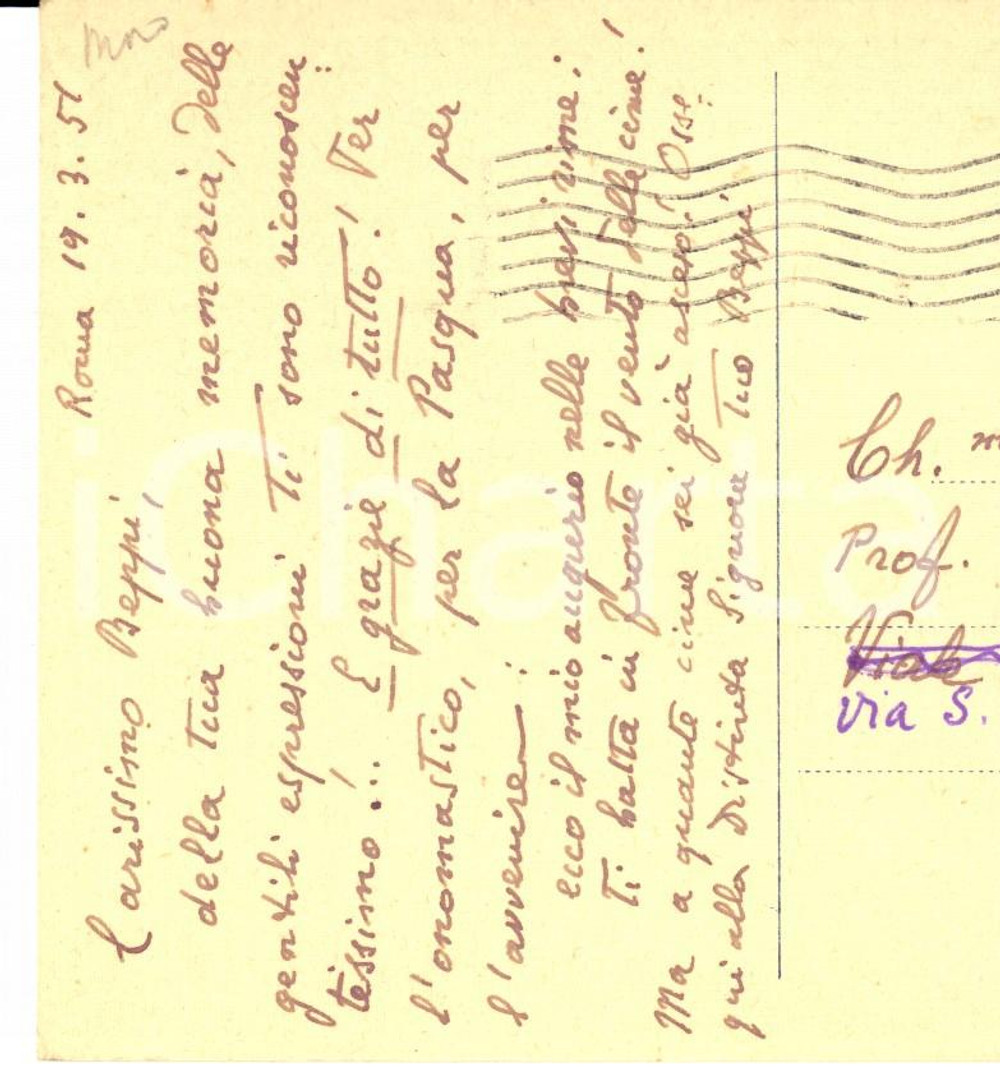 Moro
Roma 19.3.51
Carissimo Beppi,
della tua buona memoria, delle
gentili espressioni Ti sono riconoscen
tessimo!.. E grazie di tutto! Per
l'onomastico, per la Pasqua, per
l'avvenire
ecco il mio augurio nelle brevi rime:
Ti batta in fronte il vento delle cime!
Ma a quante cime sei già asceso! Oss.
qui alla Distinta Signora Tuo Beppi
Ch.
Prof.
Viale
via S.
iCharta